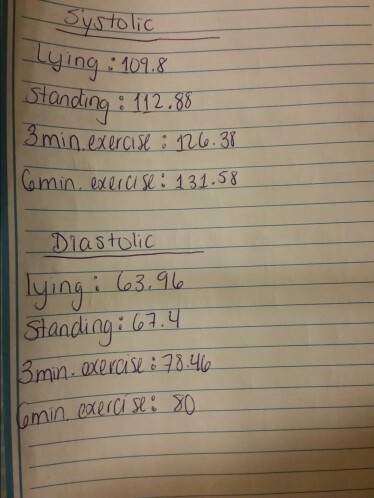 Systolic
Lying: 109.8
Standing: 112.88
3min. exercise: 126.38
6min. exercise: 131.58
Diastolic
lying: 63.96
Standing: 67.4
3min. exercise: 78.46
6min. exercise: 80